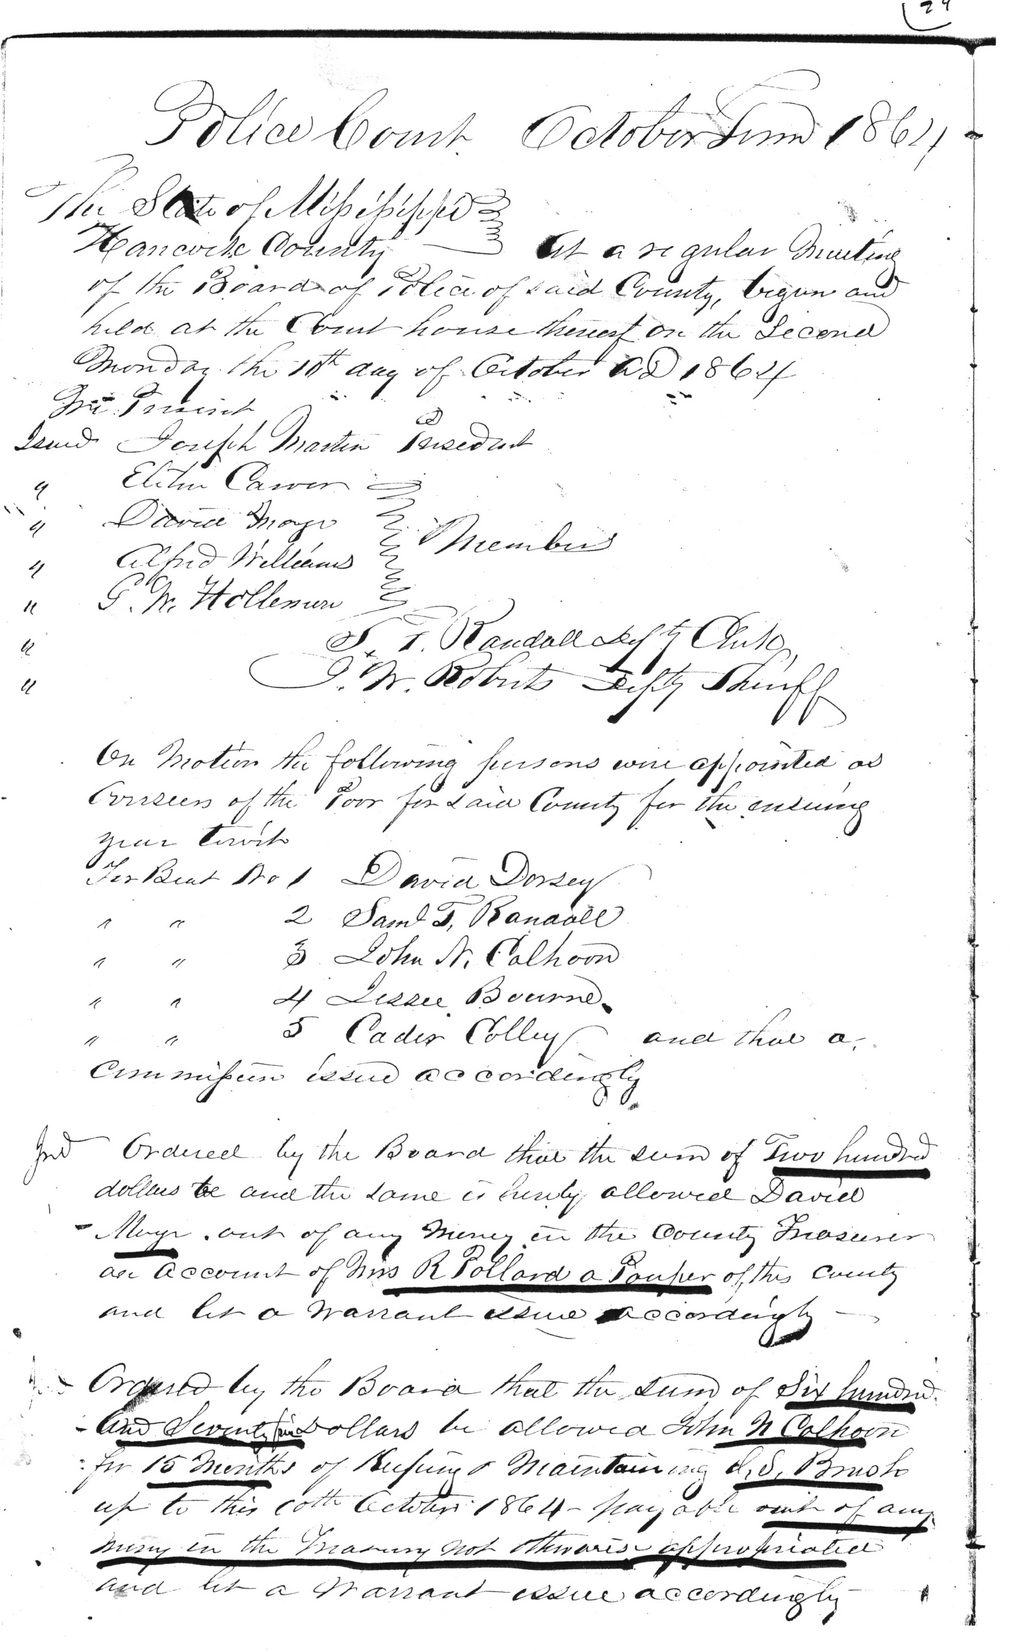 24
Police Court October Term 1864
The State of Mississippi
Hancock County At a regular Meeting
of the Board of Police of said County, begun and
held at the Court house thereof on the Second
Monday the 10th day of October AD 1864
Present
Issued Joseph Martin President
" Elihu Carver
" David Moye
" Alfred Williams Members
" G. W. Holleman
" S. T. Randall Depty Clerk,
" J. W. Roberts Depty Sheriff
On Motion the following persons were appointed as
Overseers of the Poor for said County for the ensuing
year towit
For Beat No 1 David Dorsey
" " 2 Saml T. Randall
" " 3 John N. Calhoon
" " 4 Jessee Bourne
" " 5 Cader Colley and that a
Commission issue accordingly
Ordered by the Board that the sum of Two hundred
dollars be and the same is hereby allowed David
Moye out of any Money in the County Treasurer
on account of Mrs R Pollard a Pauper of this County
and let a Warrant issue accordingly
Ordered by the Board that the sum of Six hundred
and Seventy five Dollars be allowed John N Calhoon
for 15 Months of Keeping & Maintaining S. S. Brush
up to this 10th October 1864 - payable out of any
money in the Treasury not otherwise appropriated
and let a Warrant issue accordingly